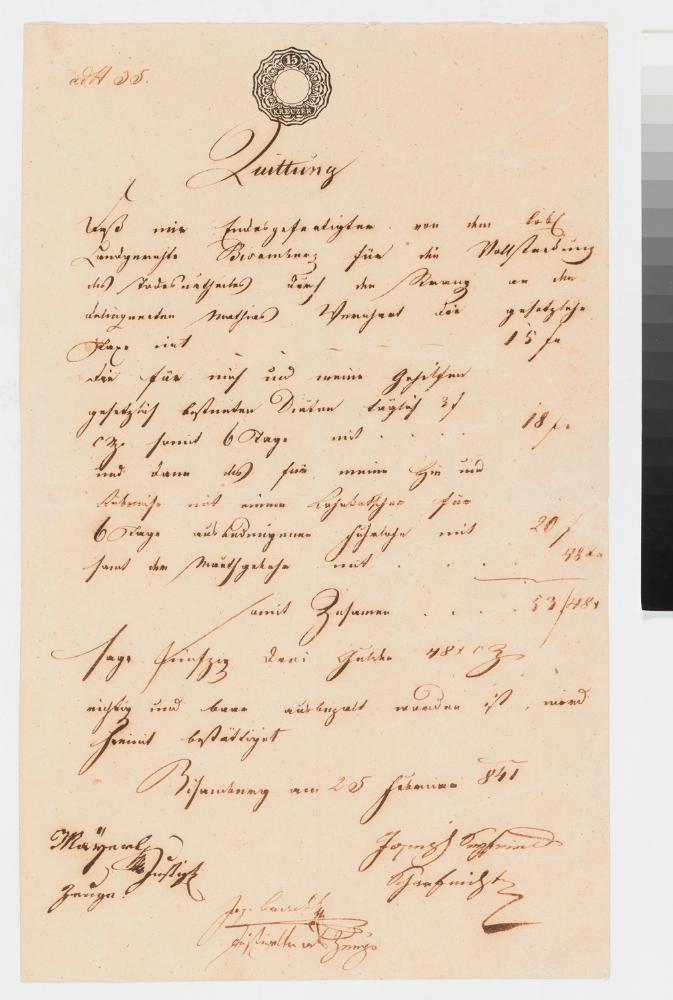 ad N 35.
15
KREUZER
Quittung
Daß mir Endesgefertigten von dem löbl
Landgerichte Bisamberg für die Vollstreckung
des Todesurtheiles durch den Strang an den
delinquenten Mathias Wernhart die gesetzliche
Taxe mit 15 fr
die für mich und meine Gehilfen
gesetzlich bestimten Diäten täglich 3 f
CM. somit 6 Tage mit . . . . 18 f.
und dann das für meine Hin und
Rükreise mit einem Lohnkutscher für
6 Tage ausbedungenen Fuhrlohn mit 20 f
samt der Mauthgebühr mit . . . . 48 x
somit Zusamen . . . . 53 f 48 x
sage fünfzig drei Gulden 48 x CM
richtig und baar ausbezalt worden ist, wird
hiemit bestättiget
Bisamberg am 25 Februar 841
Mäyerl
Justiz
Zeuge
Joseph Seyfried
Scharfrichter
Jos.
als Zeuge